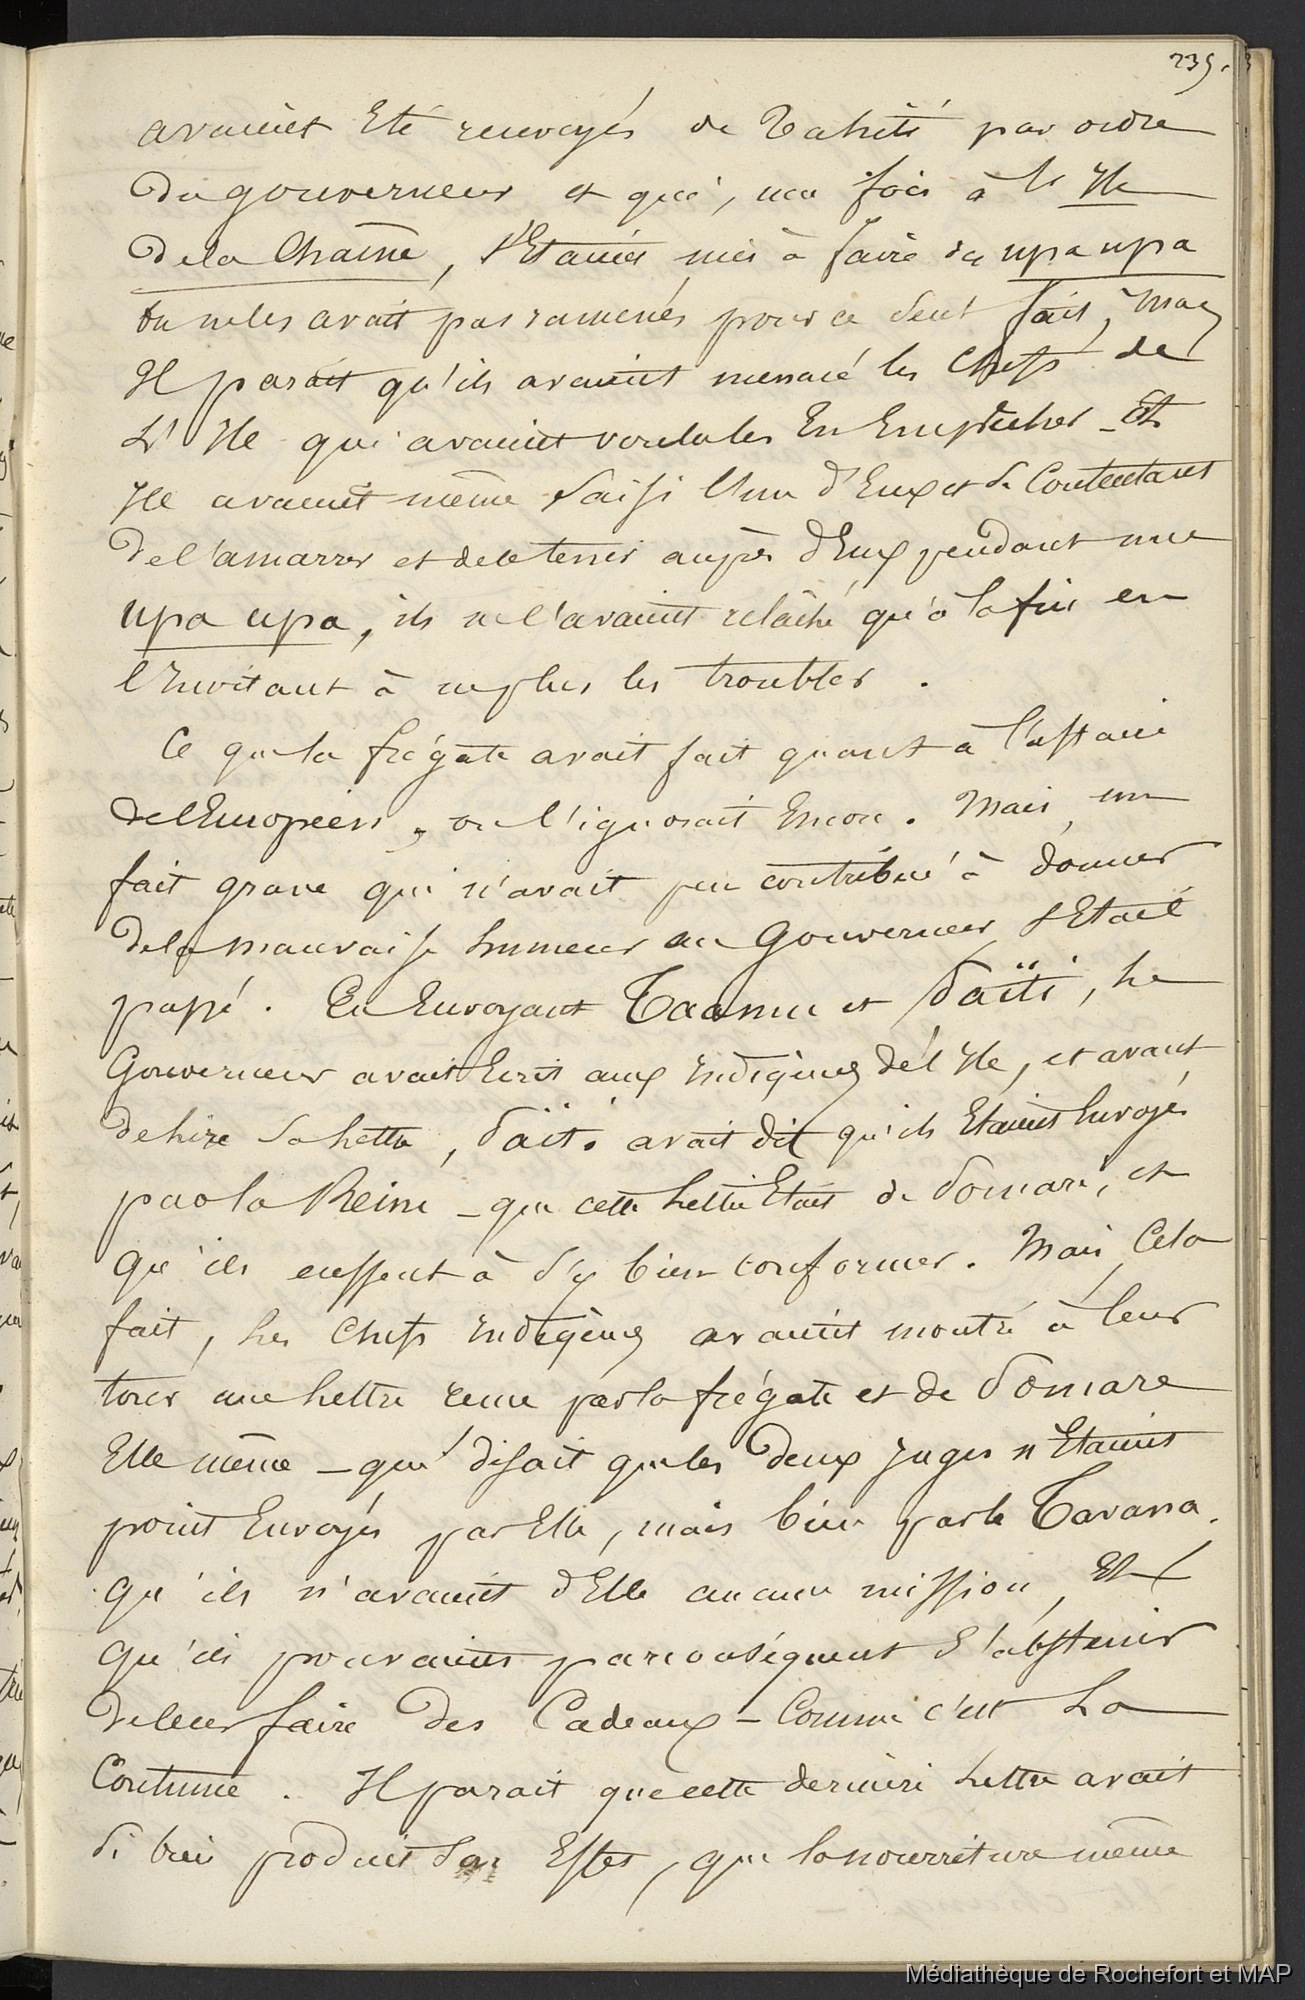 235.
avaient Eté renvoyés de Tahiti par ordre
Du gouverneur et qui, une fois à l'Ile
De la Chaîne, s'Etaient mis à faire des upa upa
On ne les avait pas ramenés pour ce seul fait, Mais
Il parait qu'ils avaient menacé les Chefs de
L'Ile qui avaient voulu les En Empêcher - Et
Ils avaient même saisi l'un d'Eux et se Contentant
De l'amarrer et de le tenir auprès d'Eux pendant une
upa upa, ils ne l'avaient relâché qu'à la fin en
l'Invitant à ne plus les troubler.
Ce que la frégate avait fait quant à l'affaire
de l'Européen, on l'ignorait Encore. Mais, un
fait grave qui n'avait peu contribué à donner
De la mauvaise humeur au Gouverneur s'Etait
passé. En Envoyant Taamu et Païti, Le
Gouverneur avait Ecrit aux Indigènes de l'Ile, et avant
De lire sa Lettre, Païti avait dit qu'ils Etaient Envoyés
par la Reine - que cette Lettre Etait de Pomaré, et
qu'ils eussent à s'y bien conformer. Mais, Cela
fait, Les Chefs Indigènes avaient montré à leur
tour une Lettre venue par la frégate et de Pomare
Elle même - qui disait que les Deux Juges n'Etaient
point Envoyés par Elle, mais bien par le Tavana.
qu'ils n'avaient d'Elle aucune mission, Et
qu'ils pouvaient par conséquent s'abstenir
de leur faire Des Cadeaux - Comme c'est La
Coutume. Il parait que cette dernière Lettre avait
si bien produit son Effet, que la nourriture même
Médiathèque de Rochefort et MAP